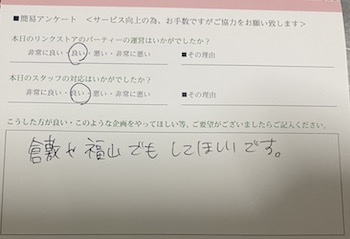 ■簡易アンケート ＜サービス向上の為、お手数ですがご協力をお願い致します＞
本日のリンクストアのパーティーの運営はいかがでしたか？
非常に良い・良い・悪い・非常に悪い ■その理由
本日のスタッフの対応はいかがでしたか？
非常に良い・良い・悪い・非常に悪い ■その理由
こうした方が良い・このような企画をやってほしい等、ご要望がございましたらご記入ください。
倉敷や福山でもしてほしいです。